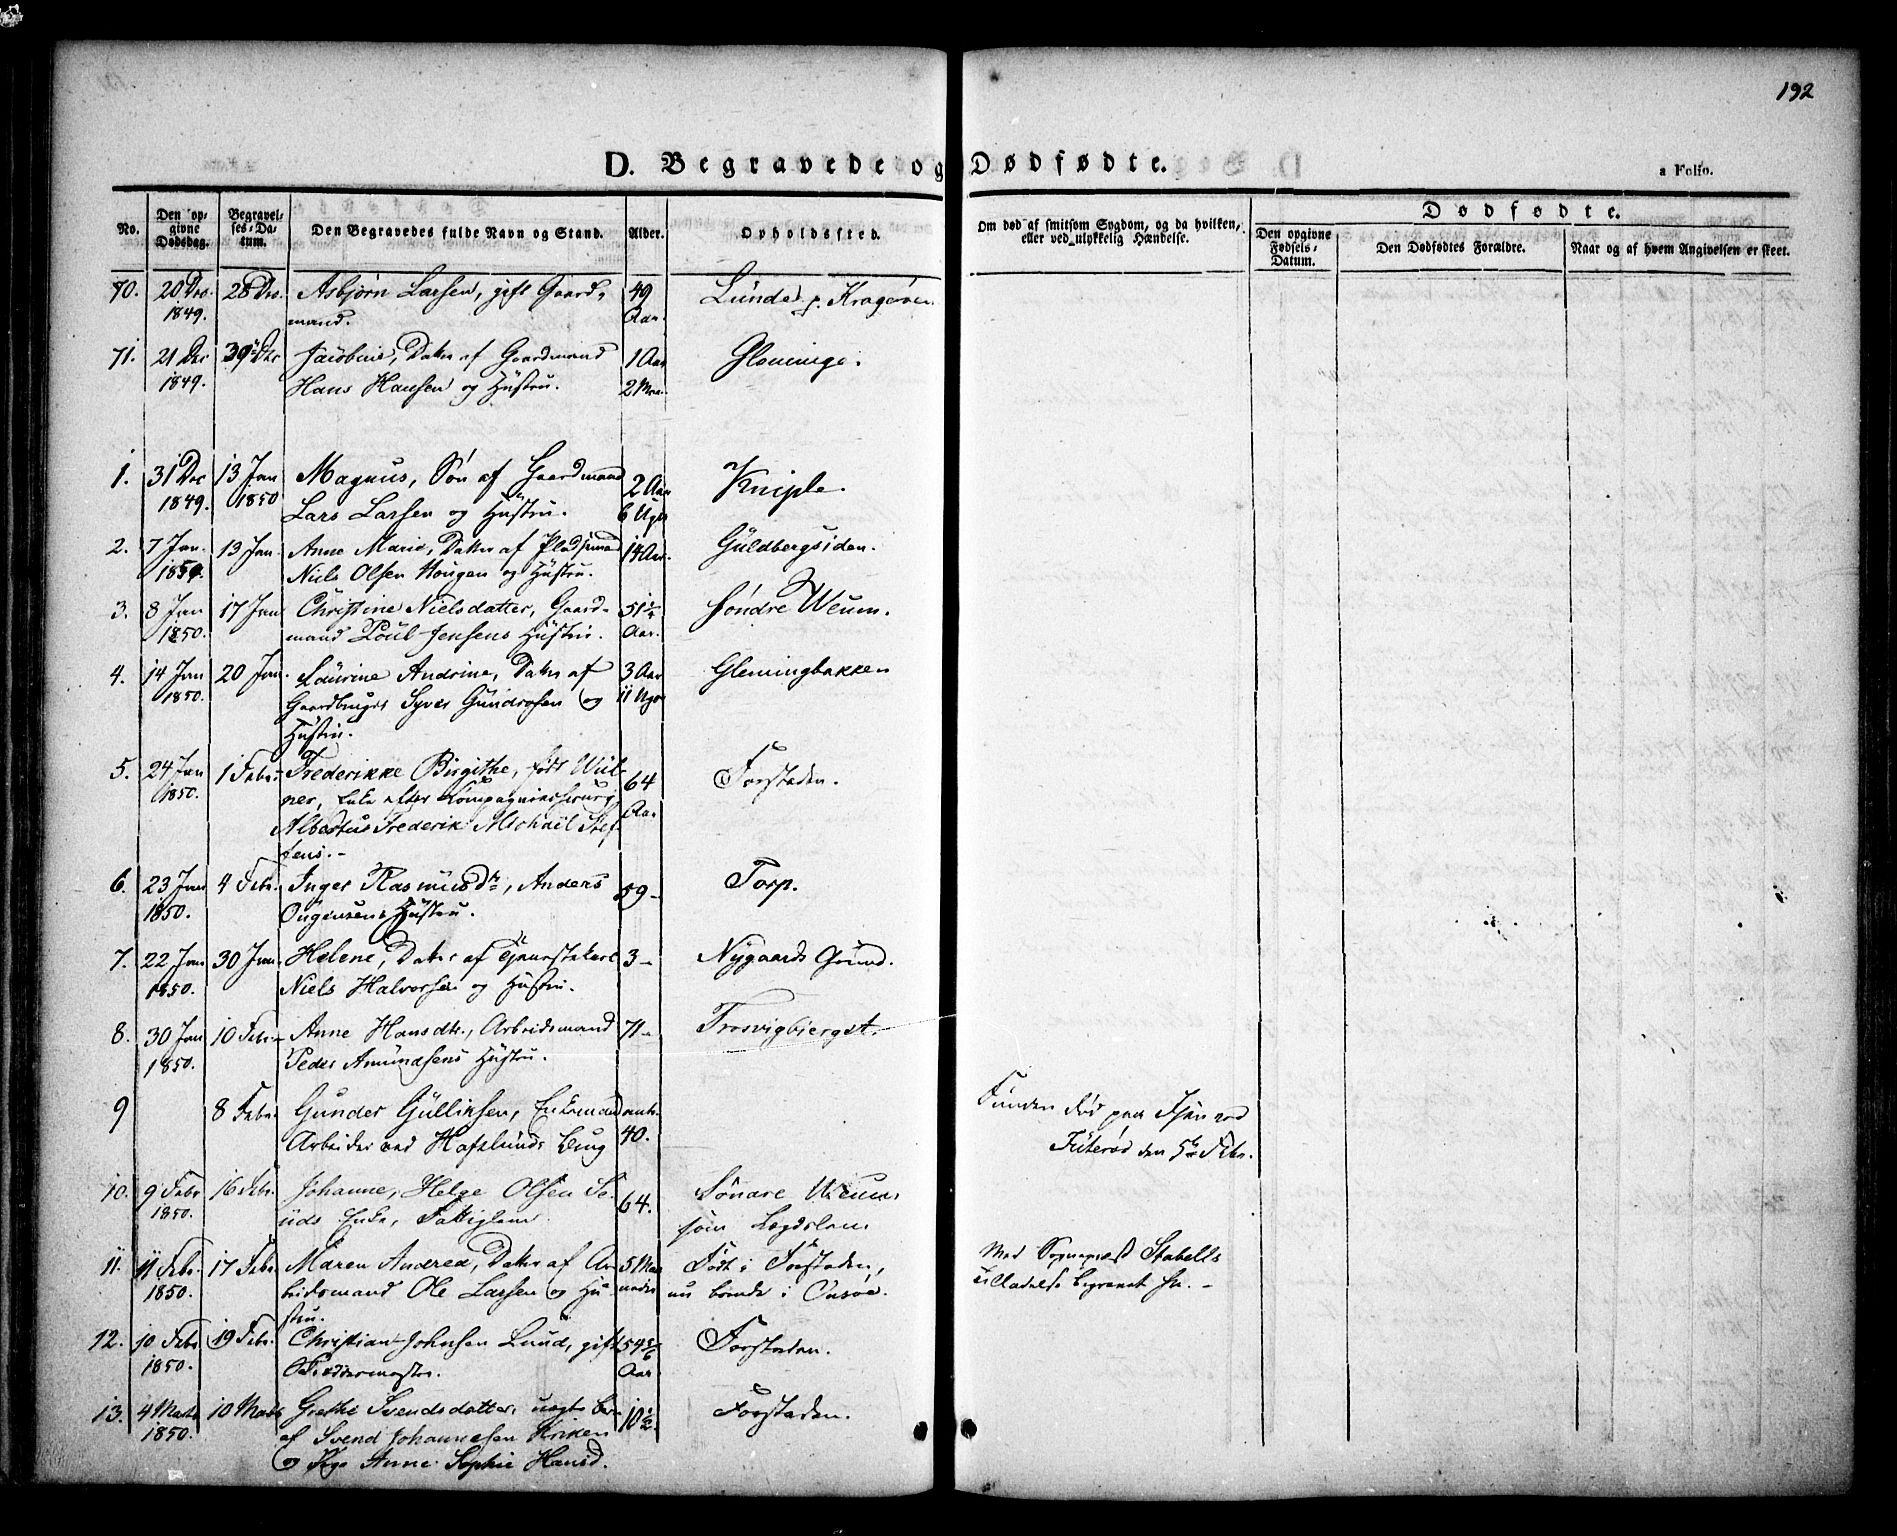 192
D. Begravede og Dødfødte.
a Folio.
No.
Den opgivne Dødsdag.
Begravelses-Datum.
Den Begravedes fulde Navn og Stand.
Alder.
Opholdssted.
Om død af smitsom Sygdom, og da hvilken, eller ved ulykkelig Hændelse.
Dødfødte.
Den opgivne Fødsels-Datum.
Den Dødfødtes Forældre.
Naar og af hvem Angivelsen er skeet.
70. 20 Dec. 28 Dec. Asbjørn Larsen, gift Gaard- 49 Lunde p. Kragøen
1849. mand. Aar.
71. 21 Dec Dec Jacobine, Datter af Gaardmand 1 Aar Gleninge.
1849. Hans Hansen og Hustru. 2 Mdr.
1. 31 Dec 13 Jan Magnus, Søn af Gaardmand 2 Aar Kniple.
1849. 1850 Lars Larsen og Hustru. 6 Uger
2. 7 Jan. 13 Jan. Anne Marie, Datter af Pladsmand 14 Aar. Guldbergsiden.
1850. Niels Olsen Hougen og Hustru.
3. 8 Jan 17 Jan Christine Nielsdatter, Gaard- 51½ Søndre Weum.
1850. mand Poul Jensens Hustru. Aar.
4. 14 Jan 20 Jan. Laurine Andrine, Datter af 3 Aar Gleningbakken
1850. Gaardbruger Syver Gundersen og 11 Uger
Hustru.
5. 24 Jan 1 Febr. Frederikke Birgithe, født Wül- 64 Forstaden.
1850. ner, Enke efter Kompagniechirurg Aar
Albertus Frederik Michael Stef-
fens.-
6. 23 Jan 4 Febr. Inger Rasmusdr, Anders 59- Torp.
1850. Hustru.
7. 22 Jan 30 Jan. Helene, Datter af 3- Nygaards Grund.
1850. Niels Halvorsen og Hustru.
8. 30 Jan 10 Febr. Anne Hansdtr., Arbeidsmand 71- Trosvigbierget.
1850. Peder Amundsens Hustru.
9 8 Febr. Gunder Gulliksen, Enkemand omtr. Funden død paa Isen ved
Arbeider ved Hafslunds Brug 40. den 5te Febr.
10. 9 Febr 16 Febr. Johanne, Helge Olsen 64. Søndre Weum
1850. Enke, Fattiglem. som Lægdslem
11. 11 Febr. 17 Febr. Maren Andrea, Datter af Ar- 5 Maa- Født i Forstaden, Med Sognepræst Stabells
1850. beidsmand Ole Larsen og Hu- neder nu boende i Onsøe. Tilladelse begravet her. -
stru.
12. 10 Febr 19 Febr. Christian Johnsen Lund, gift 54 5/6 Forstaden.
1850. Aar.
13. 4 Marts 10 Marts Grethe Svendsdatter, uægte Barn 10½. Forstaden.
1850. af Svend Johannesen Kriken
og Pige Anne Sophie Hansd.